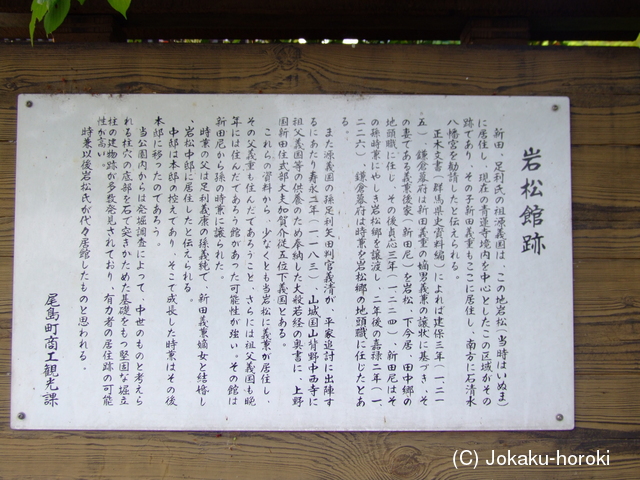 岩松館跡
新田、足利氏の祖源義国は、この地岩松(当時はいぬま)
に居住し、現在の青蓮寺境内を中心としたこの区域がその
跡であり、その子新田義重もここに居住し、南方に石清水
八幡宮を勧請したと伝えられる。
正木文書(群馬県史資料編)によれば建保三年(一二一
五)鎌倉幕府は新田義重の嫡男義兼の譲状に基づき、そ
の妻である義重後家(新田尼)を岩松、下今居、田中郷の
地頭職に任じ、その後貞応三年(一二二四)、新田尼はそ
の孫時兼にやしき岩松郷を譲渡し、二年後の嘉禄二年(一
二二六)、鎌倉幕府は時兼を岩松郷の地頭職に任じたとあ
る。
また源義国の孫足利矢田判官義清が、平家追討に出陣す
るにあたり寿永二年(一一八三)山城国山背野中西寺に
祖父義国等の供養のため奉納した大般若経の奥書に、上野
国新田住式部大夫加賀介従五位下義国とある。
これらの資料から、少なくとも当岩松に義兼が居住し、
その父義重も住んだであろうこと、さらには祖父義国も晩
年には住んだであろう館があった可能性が強い。その館は
新田尼から孫の時兼に譲られた。
時兼の父は足利義康の孫義純で、新田義兼嫡女と結婚し
、岩松中郷に居住したと伝えられる。
中郷は本郷の控えであり、そこで成長した時兼はその後
本郷に移ったのであろう。
当公園内からは発掘調査によって、中世のものと考えら
れる柱穴の底部を石で突きかためた基礎をもつ堅固な堀立
柱の建物跡が多数発見されており、有力者の居住跡の可能
性が高い。
時兼以後岩松氏が代々居館としたものと思われる。
尾島町商工観光課
(C) Jokaku-horoki